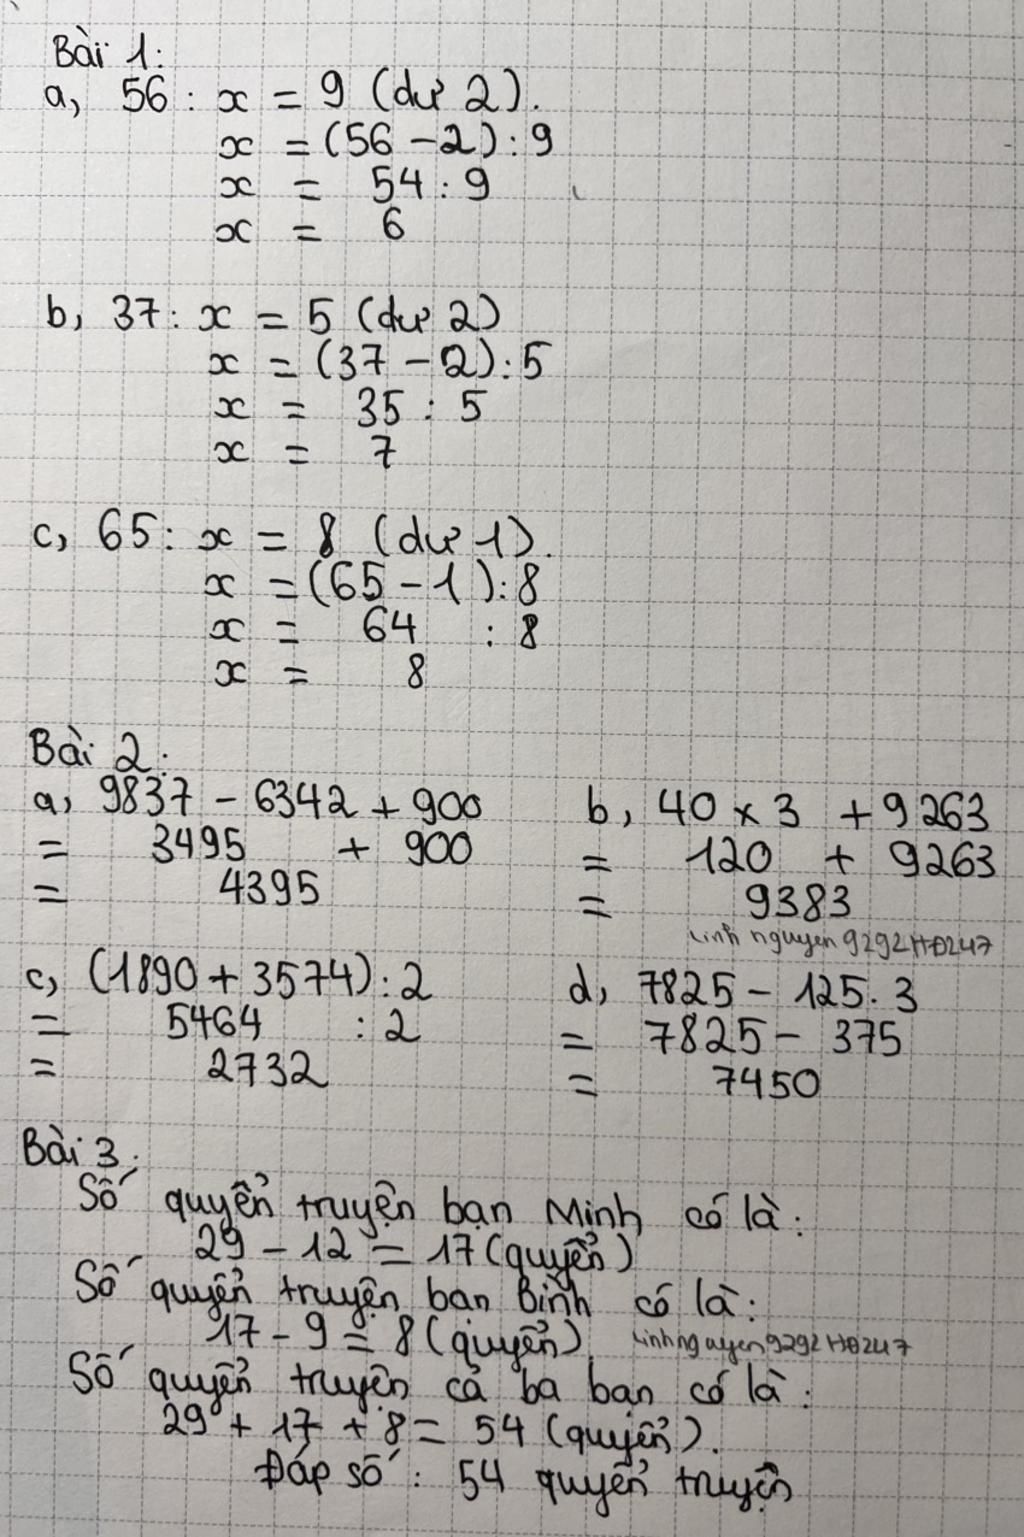 Bài 1:
a, 56 : x = 9 (dư 2).
x = (56 - 2) : 9
x = 54 : 9
x = 6
b, 37 : x = 5 (dư 2)
x = (37 - 2) : 5
x = 35 : 5
x = 7
c, 65 : x = 8 (dư 1).
x = (65 - 1) : 8
x = 64 : 8
x = 8
Bài 2:
a, 9837 - 6342 + 900
= 3495 + 900
= 4395
b, 40 x 3 + 9263
= 120 + 9263
= 9383
Linh nguyen 9292HĐ247
c, (1890 + 3574) : 2
= 5464 : 2
= 2732
d, 7825 - 125 . 3
= 7825 - 375
= 7450
Bài 3:
Số quyển truyện bạn Minh có là:
29 - 12 = 17 (quyển)
Số quyển truyện bạn Bình có là:
17 - 9 = 8 (quyển)
Linhnguyen9292HĐ247
Số quyển truyện cả ba bạn có là:
29 + 17 + 8 = 54 (quyển).
Đáp số : 54 quyển truyện